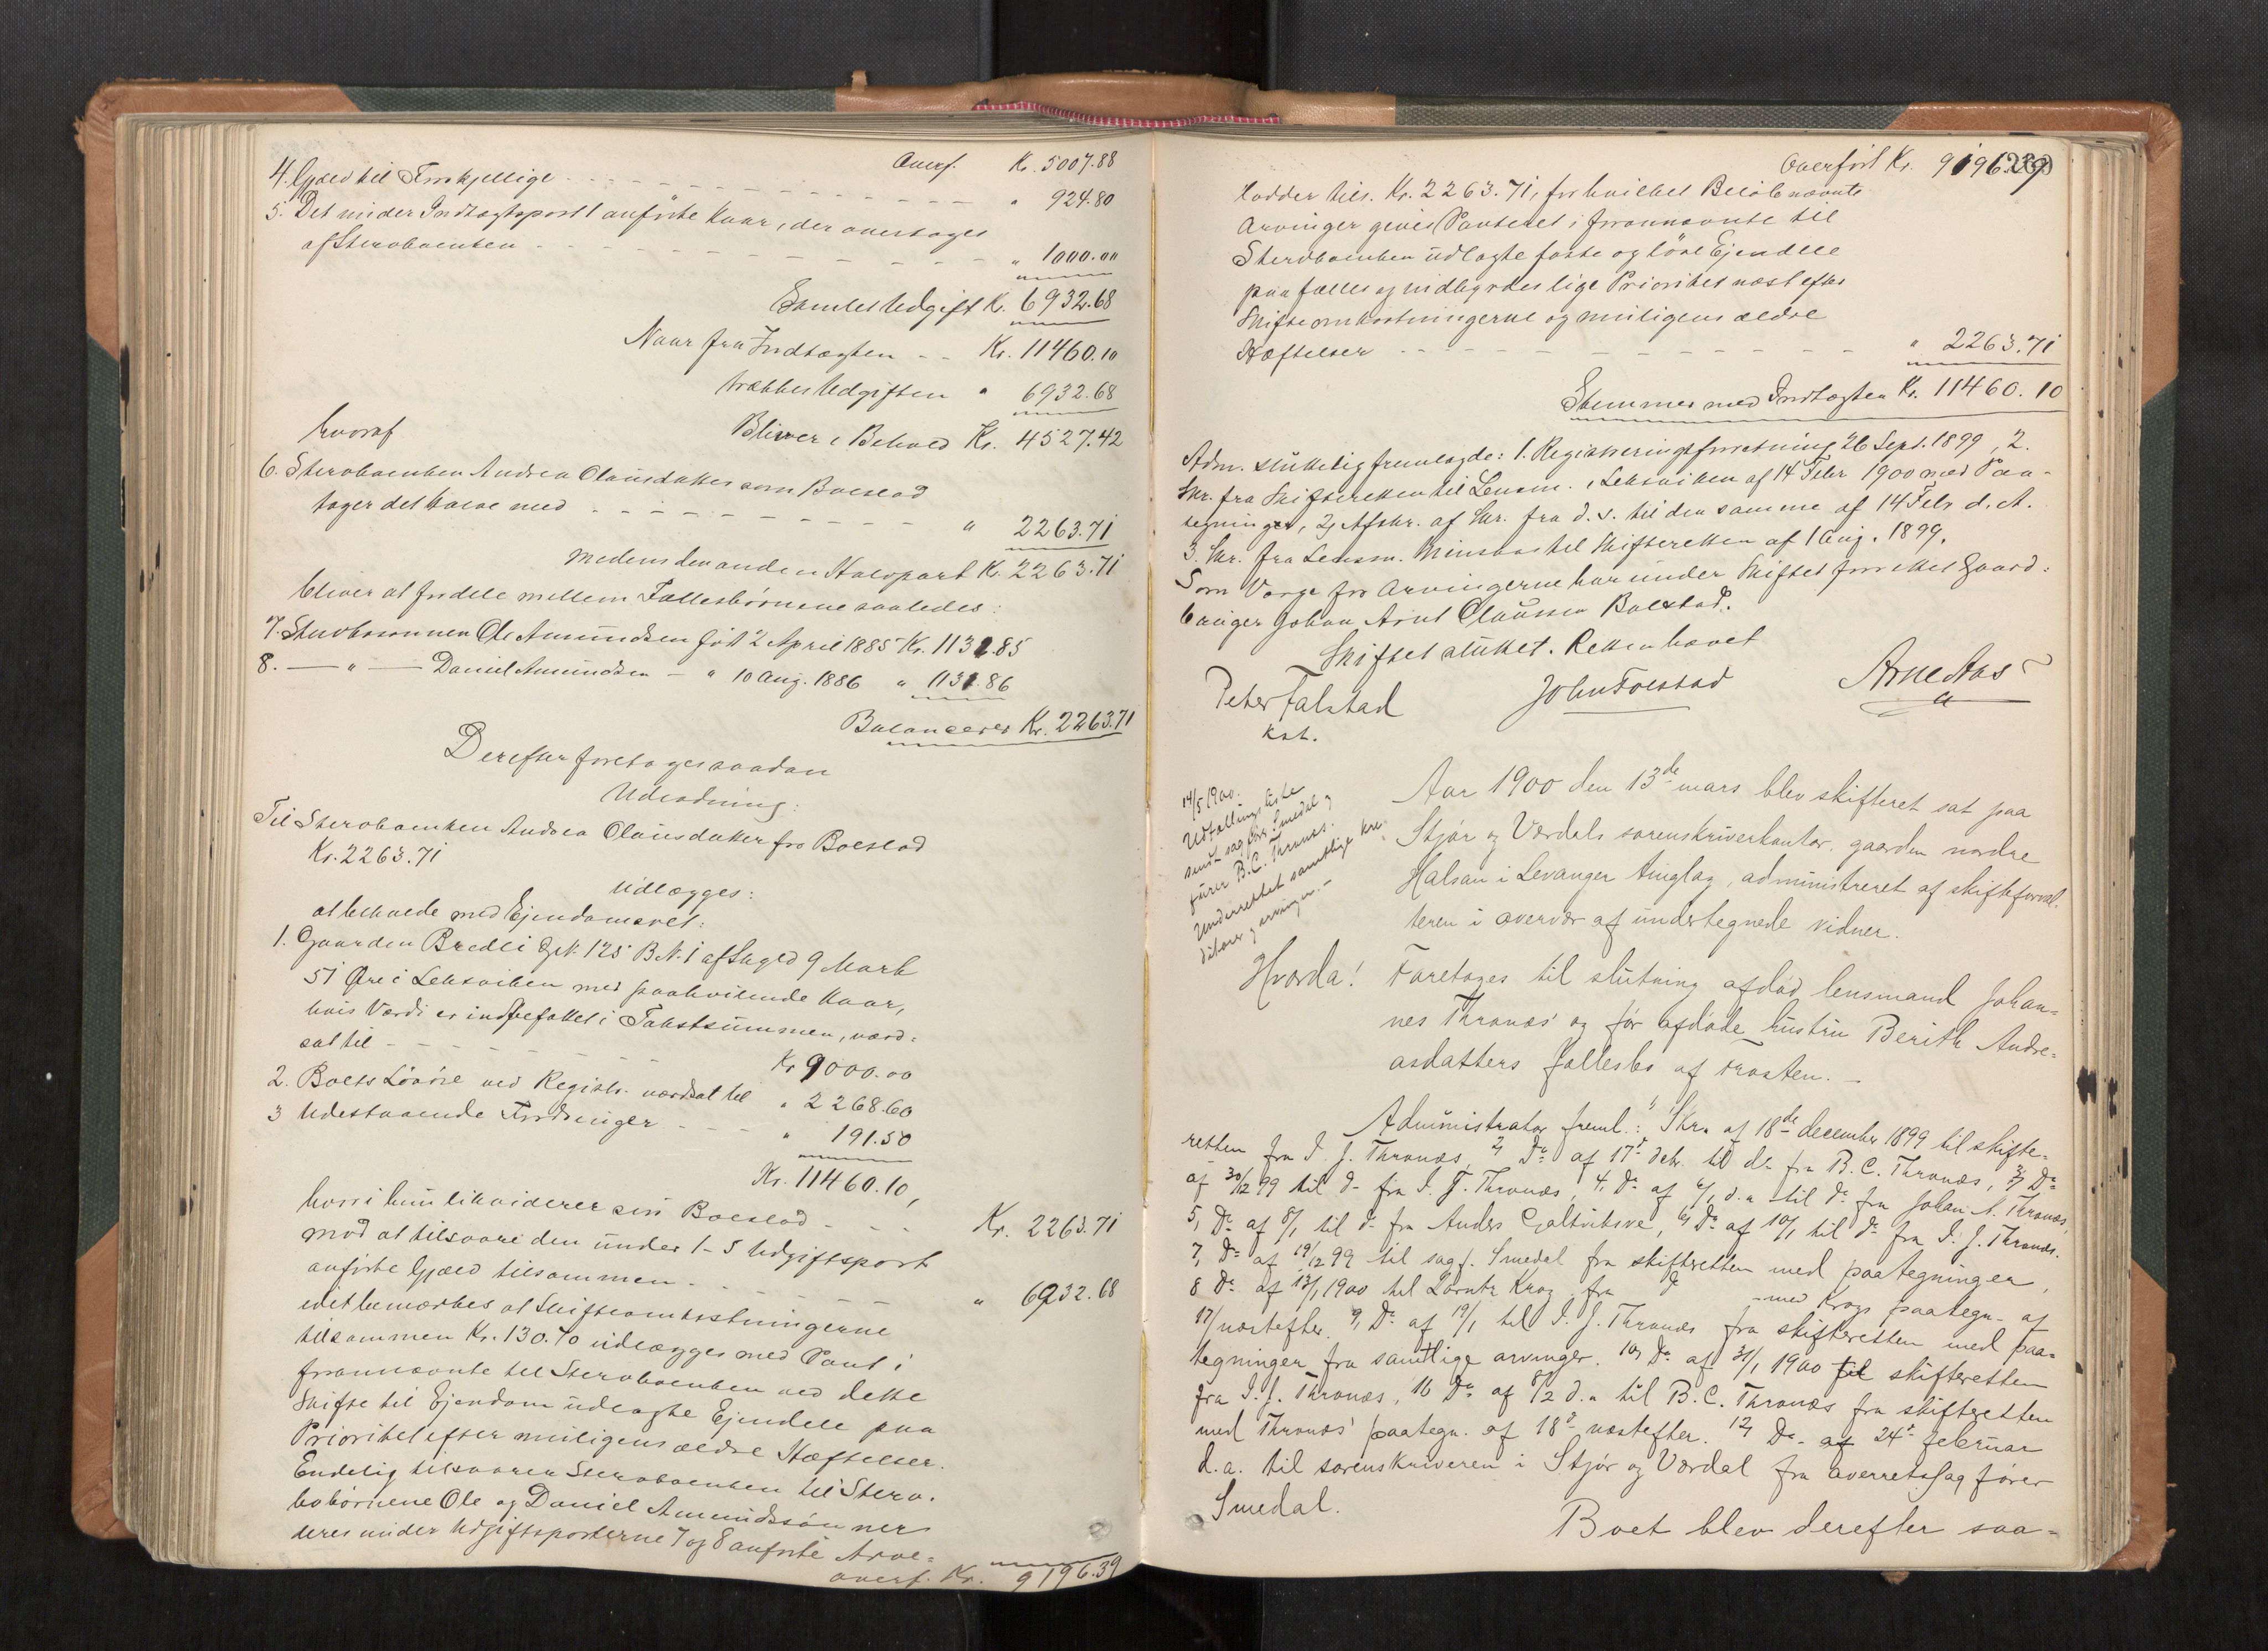 Overf. Kr. 5007.88
4. Gjæld til Forskjellige - - - " 924.80
5. Det under Indtægtspost 1 anførte Kaar, der overtages
af Stervboenken - - - " 1000.00
Samlet Udgift Kr. 6932.68
Naar fra Indtægten - - Kr. 11460.10
trækkes Udgiften " 6932.68
Bliver i Behold Kr. 4527.42
hvoraf
6. Stervboenken Andrea Olausdatter som Boeslod
tager det halve med - - - " 2263.71
medens den anden Halvpart Kr. 2263.71
bliver at fordele mellem Fællesbørnene saaledes:
7. Stervbosønnen Ole Amundsen født 2 April 1885 Kr. 1131.85
8. — " — Daniel Amundsen — " 10 Aug. 1886 " 1131.86
Balancerer Kr. 2263.71
Derefter foretoges saadan
Udlodning:
Til Stervboenken Andrea Olausdatter for Boeslod
Kr. 2263.71
udlægges:
at beholde med Ejendomsret:
1. Gaarden Bredli G.N. 125 B.N. 1 af Skyld 9 Mark
51 Øre i Leksviken med paahvilende Kaar,
hvis Værdi er indbefattet i Takstsummen, værd=
sat til - - - Kr. 9000.00
2. Boets Løsøre ved Registr. værdsat til " 2268.60
3 Udestaaende Fordringer - - - " 191.50
Kr. 11460.10,
hvori hun likviderer sin Boeslod - - - Kr. 2263.71
mod at tilsvare den under 1-5 Udgiftspost
anførte Gjæld tilsammen - - - " 6932.68
idet bemærkes at Skifteomkostningerne
tilsammen Kr. 130.70 udlægges med Pant i
forannævnte til Stervboenken ved dette
Skifte til Ejendom udlagte Ejendele paa
Prioritet efter muligens ældre Hæftelser.
Endelig tilsvarer Stervboenken til Sterv.
bobørnene Ole og Daniel Amundsønner
deres under Udgiftsposterne 7 og 8 anførte Arve=
overf. Kr. 9196.39
Overført Kr. 9196.39
lodder tils. Kr. 2263.71, for hvilket Beløb nævnte
Arvinger gives Panteret i forannævnte til
Stervboenken udlagte faste og løse Ejendele
paa fælles og indbyrdes lige Prioritet næst efter
Skifteomkostningerne og muligens ældre
Hæftelser - - - " 2263.71
Stemmer med Indtægten Kr. 11460.10
Adm. slutteligfremlagde: 1. Registreringsforretning 26 Sept. 1899, 2.
Skr. fra Skifteretten til Lensm. i Leksviken af 14 Febr 1900 med Paa-
tegninger, 2) Afskr. af Skr. fra d. s. til den samme af 14 Febr d. A.
3. Skr. fra Lensm. Minsaas til Skifteretten af 1 Aug. 1899.
Som Værge for Arvingerne har under Skiftet fungeret Gaard:
bruger Johan Arnt Olausen Bolstad.
Skiftet sluttet. Retten hævet
Peter Falstad
kst.
John Folstad
Arne Aas
14/5 1900.
Udfallingsliste
sendt sagfør. Smedal og
fuser B.C. Thronæs.
Underrettet samtlige kre-
ditorer og arvinger. -
Aar 1900 den 13de mars blev skifteret sat paa
Stjør og Værdals sorenskriverkontor, gaarden nordre
Halsan i Levanger tinglag, administreret af skifteforval-
teren i overvær af undertegnede vidner.
Hvorda! Foretoges til slutning afdød lensmand Johan=
nes Thronæs' og før afdøde hustru Berith Andre=
asdatters fællesbo af Frosten. -
Administrator freml.: 1, Skr. af 18de december 1899 til skifte-
retten fra I. J. Thronæs, 2, Do af 17d decbr. til do fra B. C. Thronæs, 3, Do
af 30/12 99 til do fra I. J. Thronæs, 4, Do af 6/1 d.a. til do fra Johan N. Thronæs,
5, Do af 8/1 til do fra Anders Galtvikve, 6, Do af 10/1 til do fra I. J. Thronæs.
7, Do af 19/12 99 til sagf. Smedal fra skifteretten med paategninger,
8 Do af 13/1 1900 til Lorntz Krog fra do med Krogs paategn. af
17/ næstefter. 9, Do af 19/1 til I. J. Thronæs fra skifteretten med paa=
tegninger fra samtlige arvinger. 10, Do af 31/1 1900 til skifteretten
fra I. J. Thronæs, 11, Do af 8/2 d.a. til B. C. Thronæs fra skifteretten
med Thronæs' paategn. af 18d næstefter. 12, Do af 24d februar
d.a. til sorenskriveren i Stjør og Værdal fra overretssagfører
Smedal.
Boet blev derefter saa=